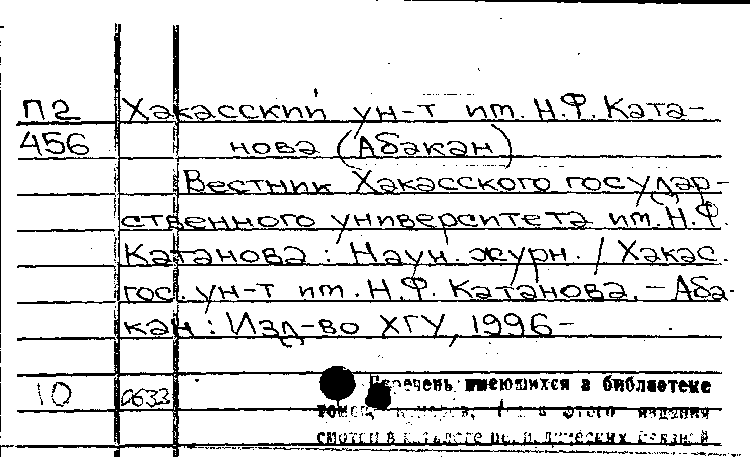 П2 Хакасский ун-т им. Н.Ф. Ката-
456 нова (Абакан)
Вестник Хакасского государ-
ственного университета им. Н.Ф.
Катанова : Науч. журн. / Хакас.
гос. ун-т им. Н.Ф. Катанова. – Аба-
кан : Изд-во ХГУ, 1996 –
10 0633 Перечень имеющихся в библиотеке
этого издания
смотри в каталоге